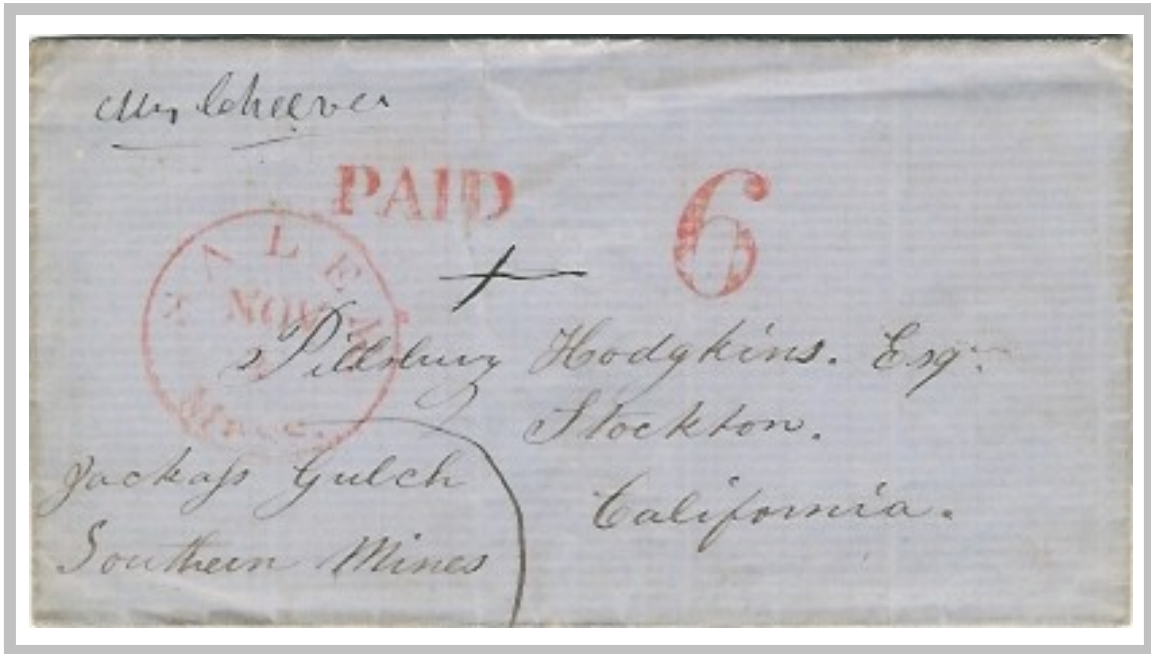 Cheever
PAID
6
SALEM
NOV
Mass.
Pillsbury Hodgkins. Esq.
Stockton.
California.
Jackass Gulch
Southern Mines